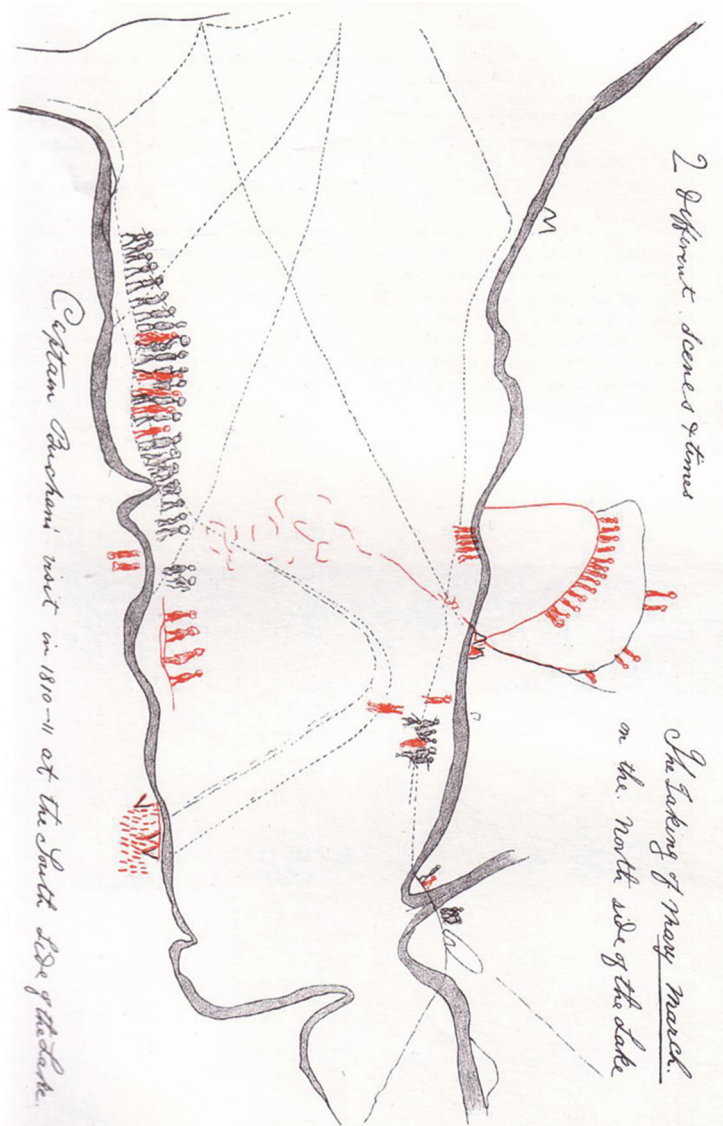 2 different scenes & times
The Taking of Mary March.
on the North side of the Lake
Captain Buchans visit in 1810-11 at the South Side of the Lake.